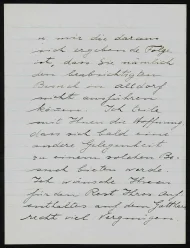 u wie die daraus
sich ergebende Folge
ist, dass Sie nämlich
den beabsichtigten
Besuch in Altdorf
nicht ausführen
können. Ich teile
mit Ihnen die Hoffnung
dass sich bald eine
andere Gelegenheit
zu einem solchen Be-
such bieten werde.
Ich wünsche Ihnen
für den Rest Ihres Auf-
enthaltes auf dem Gotthard
recht viel Vergnügen.